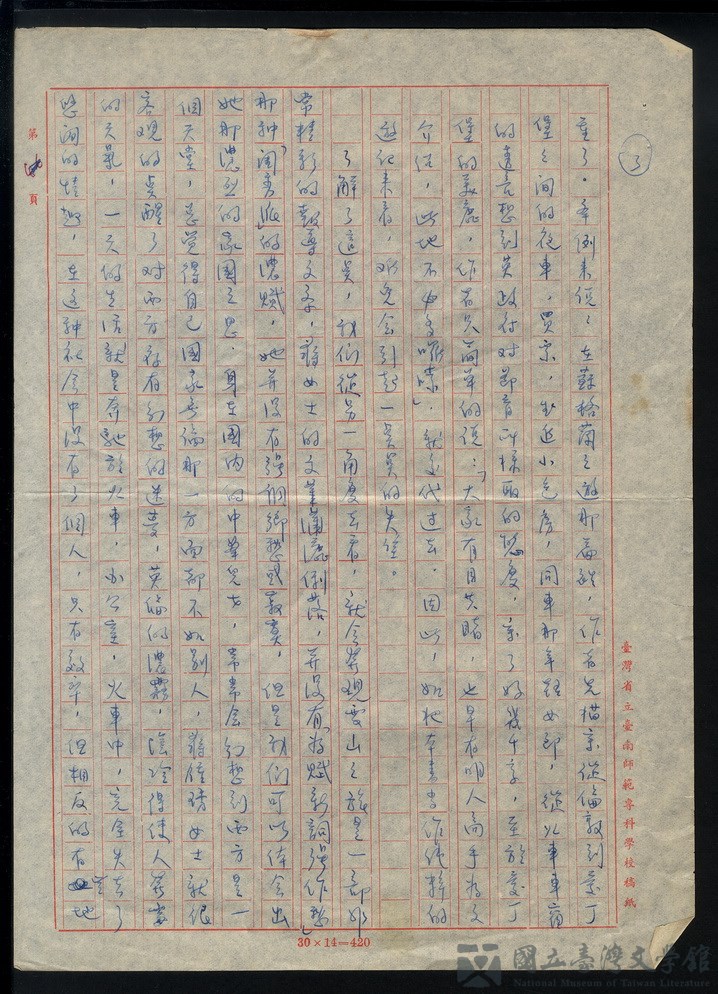 3
重了。舉例來說：在蘇格蘭之遊那篇裡，作者先描寫從倫敦到愛丁
堡之間的夜車，買票，步進小包房，同車那年輕女郎，從火車車廂
的遺言想到英政府對節育所採取的態度，寫了好幾千字，至於愛丁
堡的美麗，作者只簡單的說：「大家有目共睹，也早有哪人高手為文
介紹，此地不必多囉嗦」，就交代過去。因此，如把本書當作純粹的
遊記來看，難免會引起一點點的失望。
了解了這點，我們從另一角度去看，就會發現雪山之旅是一部非
常精彩的報導文學，蔣女士的文筆瀟灑俐落，并沒有「為賦新詞強作愁」
那種「閨秀派」的濃膩，她并沒有強調鄉愁或寂寞，但是我們可以体会出
她那濃烈的家國之思．身在國內的中華兒女，常常会幻想到西方是一
個天堂，总覺得自己國家無論那一方面都不如別人，蔣健瑋女士就很
客观的点醒了对西方存有幻想的迷夢，英倫的濃霧，陰冷得使人發霉
的天氣，一天的生活就是奔馳於火車，办公室，火車中，完全失去了
悠閒的情趣，在这种社会中沒有了個人，只有效率，但相反的有些地
第 頁
30×14=420
臺灣省立臺南師範專科學校稿紙
國立臺灣文學館
National Museum of Taiwan Literature